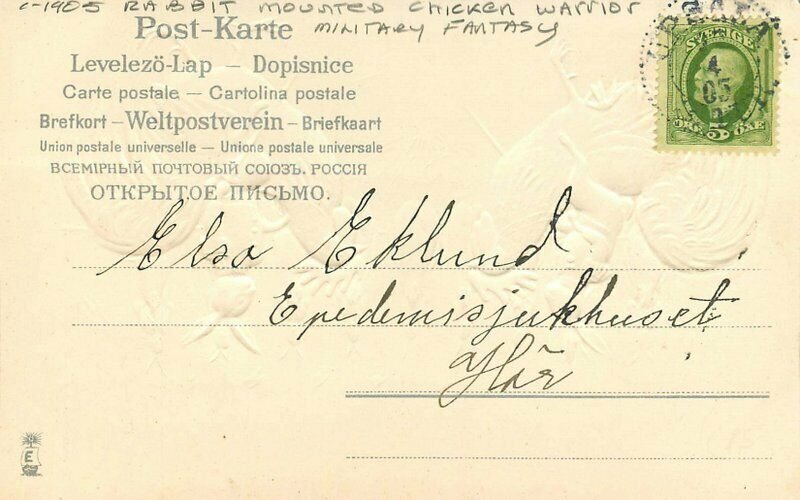 c-1905 RABBIT MOUNTED CHICKEN WARRIOR
MILITARY FANTASY
Post-Karte
Levelezö-Lap — Dopisnice
Carte postale — Cartolina postale
Brefkort – Weltpostverein – Briefkaart
Union postale universelle — Unione postale universale
ВСЕМІРНЫЙ ПОЧТОВЫЙ СОЮЗЪ. РОССІЯ
ОТКРЫТОЕ ПИСЬМО.
SVERIGE
ÖRE 5 ÖRE
4
05
Elsa Eklund
Epedemisjukhuset
Här
E